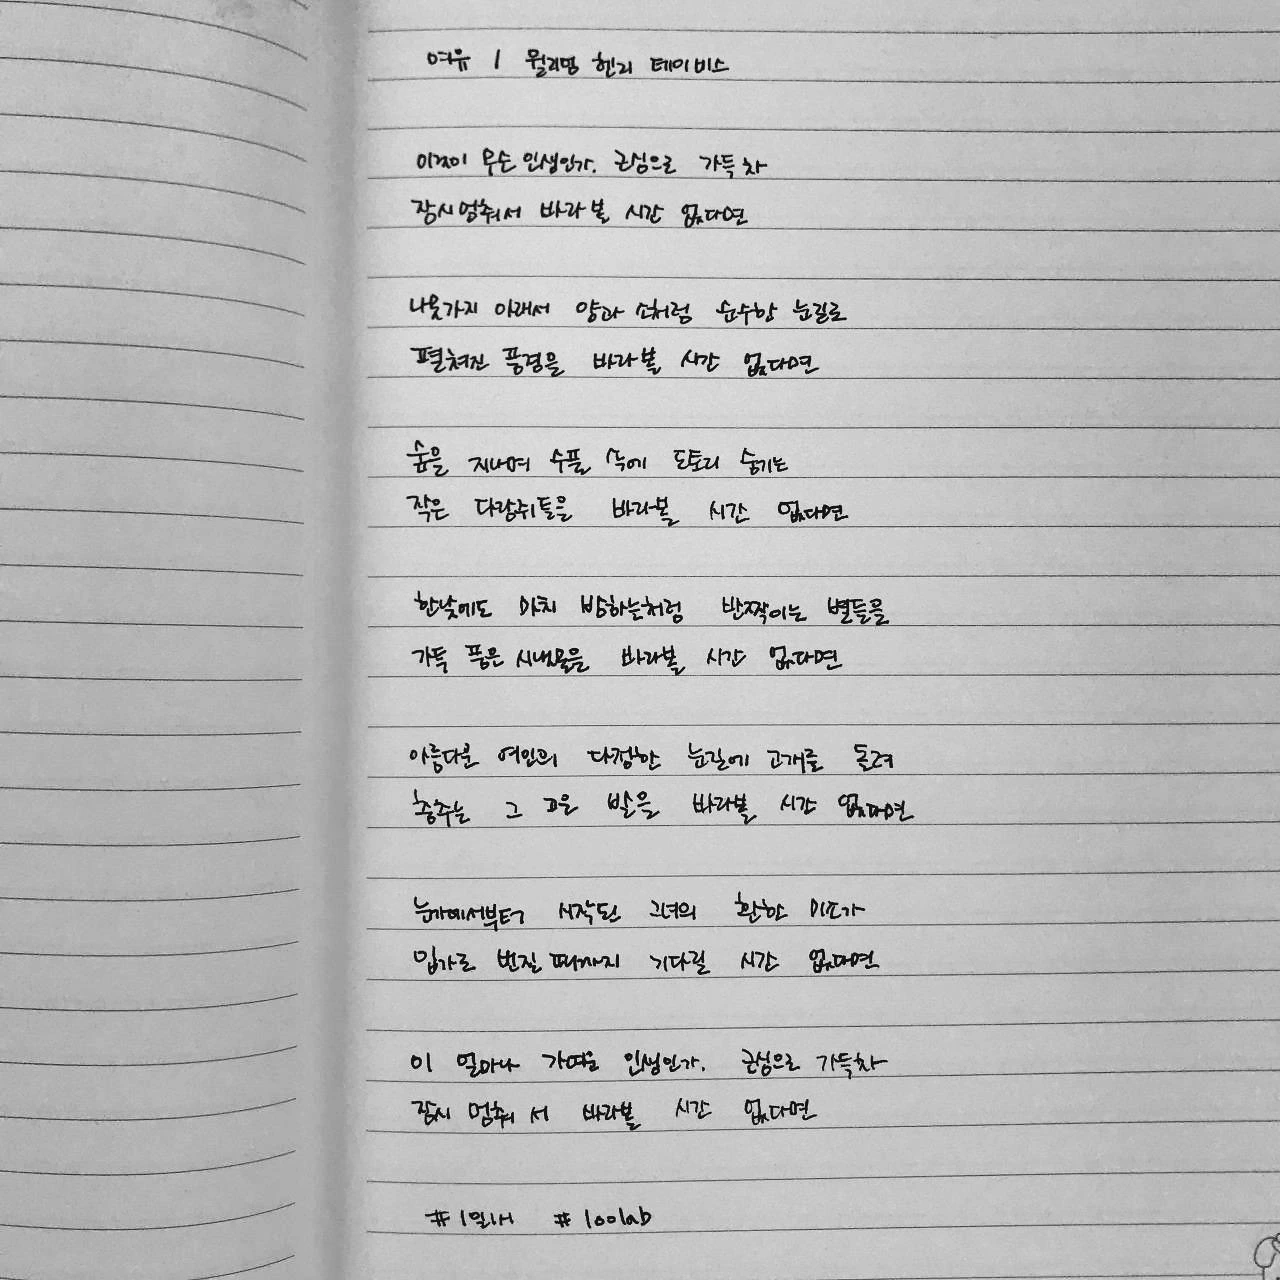 여유 / 윌리엄 헨리 데이비스
이것이 무슨 인생인가. 근심으로 가득 차
잠시 멈춰서 바라볼 시간 없다면
나뭇가지 아래서 양과 소처럼 순수한 눈길로
펼쳐진 풍경을 바라볼 시간 없다면
숲을 지나며 수풀 속에 도토리 숨기는
작은 다람쥐들을 바라볼 시간 없다면
한낮에도 마치 밤하늘처럼 반짝이는 별들을
가득 품은 시냇물을 바라볼 시간 없다면
아름다운 여인의 다정한 눈길에 고개를 돌려
춤추는 그 고운 발을 바라볼 시간 없다면
눈가에서부터 시작된 그녀의 환한 미소가
입가로 번질 때까지 기다릴 시간 없다면
이 얼마나 가여운 인생인가. 근심으로 가득 차
잠시 멈춰 서 바라볼 시간 없다면
#1일1시 #100lab